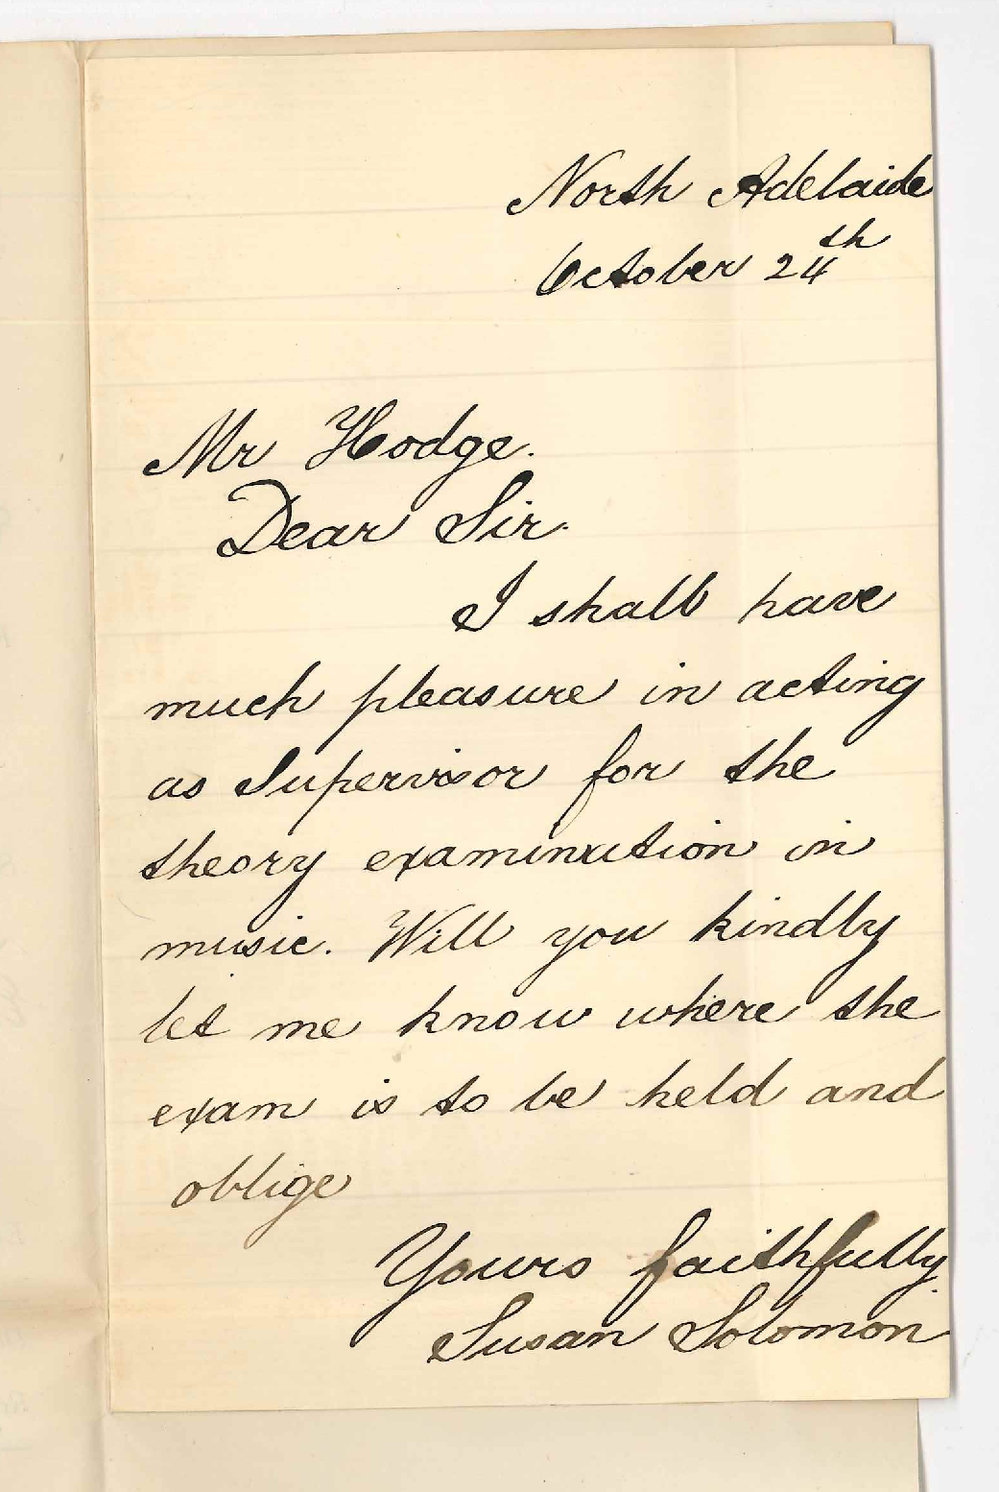 North Adelaide
October 24th
Mr Hodge.
Dear Sir.
I shall have
much pleasure in acting
as Supervisor for the
theory examination in
music. Will you kindly
let me know where the
exam is to be held and
oblige
Yours faithfully.
Susan Solomon